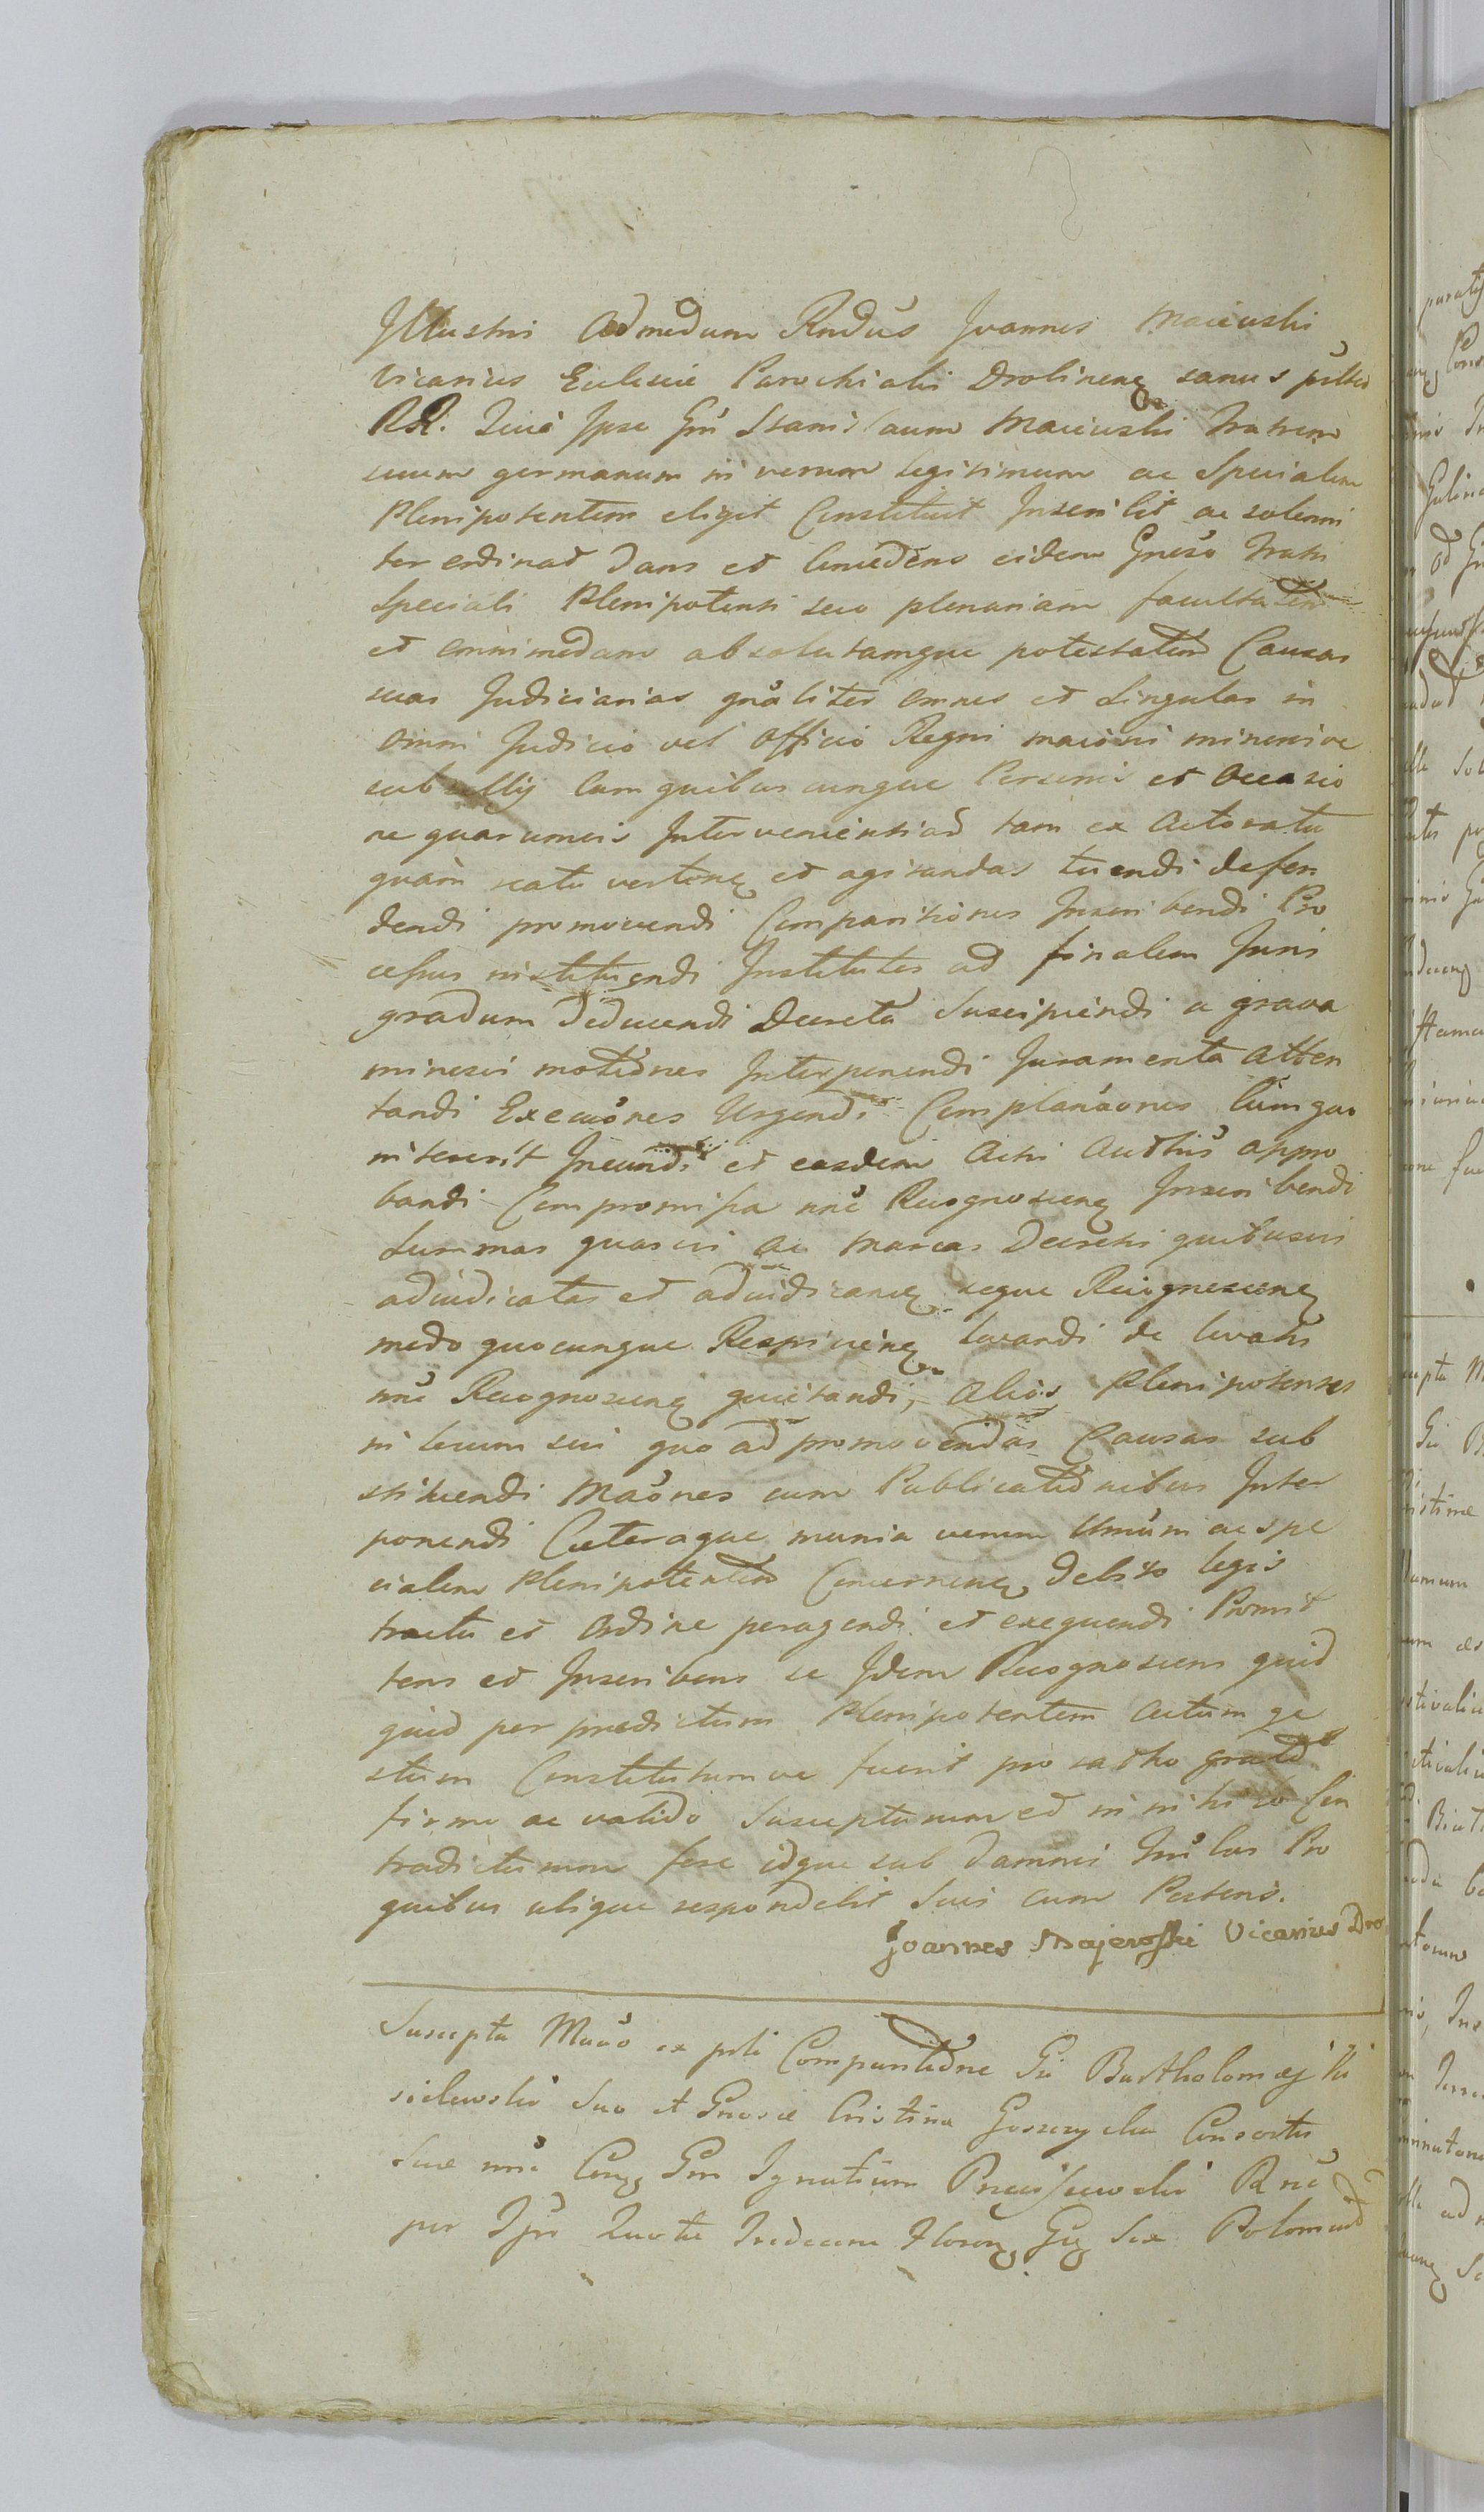 Illustris Admodum Rndus Joannes Maiewski
Vicarius Eclesiæ Parochialis Drobinenς sanus pntbus
RR. Quia Ipse Gm Stanislaum Maiewski Fratrem
suum germanum in verum legitimum ac Specialem
Plenipotentem eligit Constituit Inscribit ac solenni
ter ordinat Dans et Concedens eidem Gneso Fratri
Speciali Plenipotenti suo plenariam facultatem
et omnimodam absolutamque potestatem Causas
suas Judiciarias gnaliter omnes et singulas in
omni Judicio vel Officio Regni maiori minorive
subsellij Cum quibus cunque Personis et Occasio
ne quarumvis Intervenientiad tam ex Actoratu
quàm reatu vertenς et agitandas tuendi defen
dendi promovendi Comparitiones Inscribendi Pro
cessus instituendi Institutos ad finalem Juris
gradum deducendi Decreta Suscipiendi a grava
minesvi motiones Interponendi Juramenta Atten
tandi Execuones Urgendi Complanaones Cum quo
intererit Ineundi et easdem Actis Authis appro
bandi Compromissa nne Recognoscenς Inscribendi
Summas quasvis ac Marcas Decretis quibusvis
adiudicatas et adiudicanς seque Recognoscenς
modo quocunque Respicienς levandi de levatis
nne Recognoscenς quietandi, alios Plenipotentes
in locum sui quo ad promovendas Causas sub
stituendi Maones cum Publicationibus Inter
ponendi Cæteraque munia verum Unum ac spe
cialem Plenipotentem Concernenς debito legis
tractu et Ordine peragendi et exequendi Promit
tens et Inscribens se Idem Recognoscens quid
quid per prædictum Plenipotentem Actum ge
stum Constitutumve fuerit pro ratho grato
firmo ac valido Suscepturum et in nihilo Con
tradicturum fore idque sub damnis Trilus Pro
quibus ubique respondebit Suis cum Posteris.
Joannes Majewski Vicarius Dro
Suscepta Maao ex pnti Comparitione Gi Bartholomæj Ki
sielewski Suo et Gnosæ Cristina Goszczycka Consortis
Suæ nne Conς Gm Ignatium Przecissewski R ne
per Ipm Quota Indecem Floren Gς Sex Polonicad